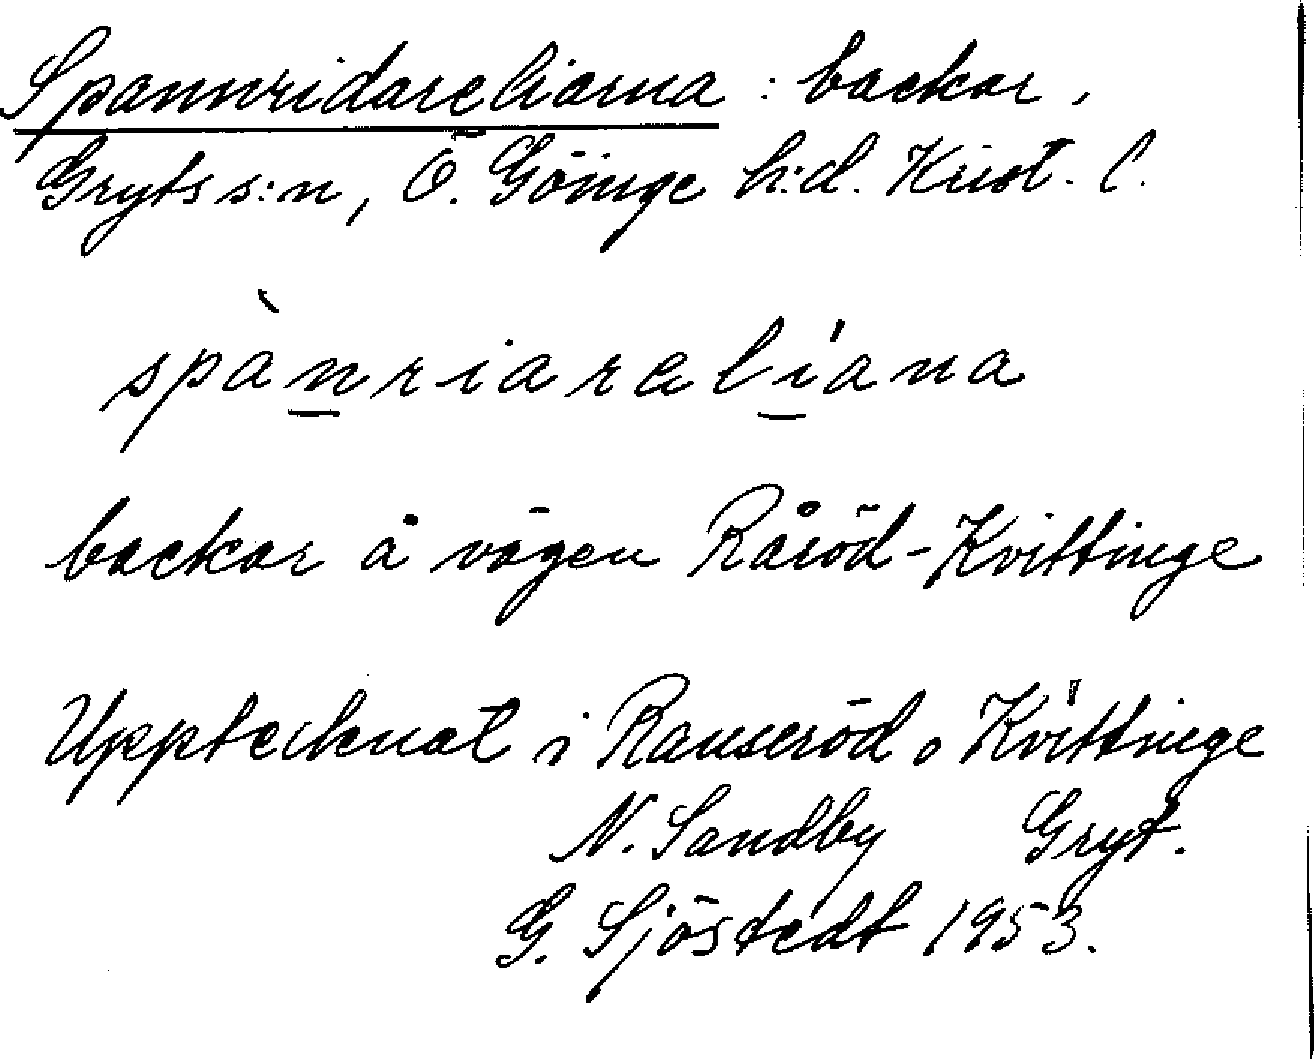 Spannridareliarna: backar,
Gryts s:n, Ö. Göinge h:d. Krist. l.
spànriareliana
backar å vägen Råröd-Kvittinge
Upptecknat i Ranseröd o Kvittinge
N. Sandby Gryt.
G. Sjöstedt 1953.